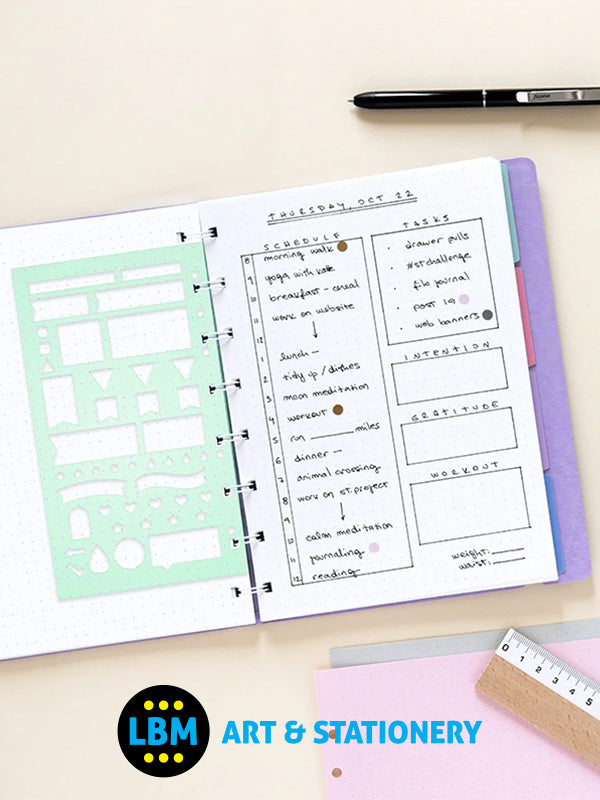 THURSDAY, OCT 22
SCHEDULE
8 morning walk
9 yoga with kate
10 breakfast - cereal
11 work on website
12 ↓
1 lunch —
2 tidy up / dishes
3 moon meditation
4 workout
5 run ______ miles
6 dinner —
7 animal crossing
8 work on st.project
9 ↓
10 calm meditation
11 journaling
12 reading
TASKS
· drawer pulls
· #stchallenge
· filo journal
· post IG
· web banners
INTENTION
GRATITUDE
WORKOUT
weight: ____
waist: ____
0 1 2 3 4 5
LBM ART & STATIONERY